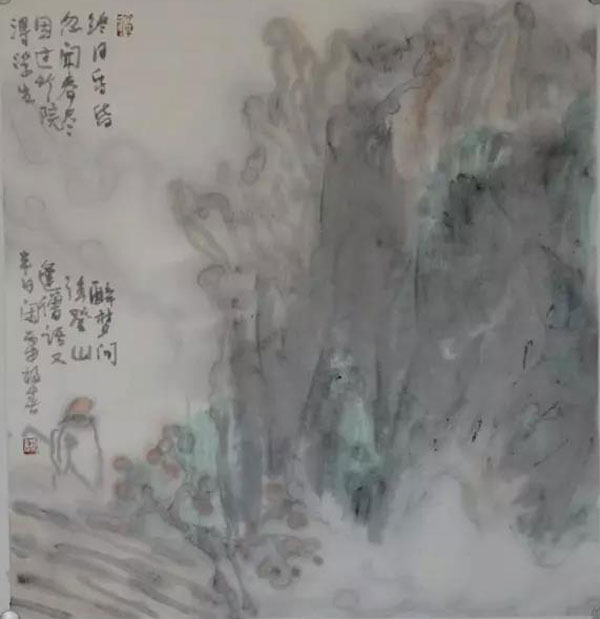 终日昏昏
醉梦间
忽闻春尽
强登山
因过竹院
逢僧语又
得浮生
半日闲